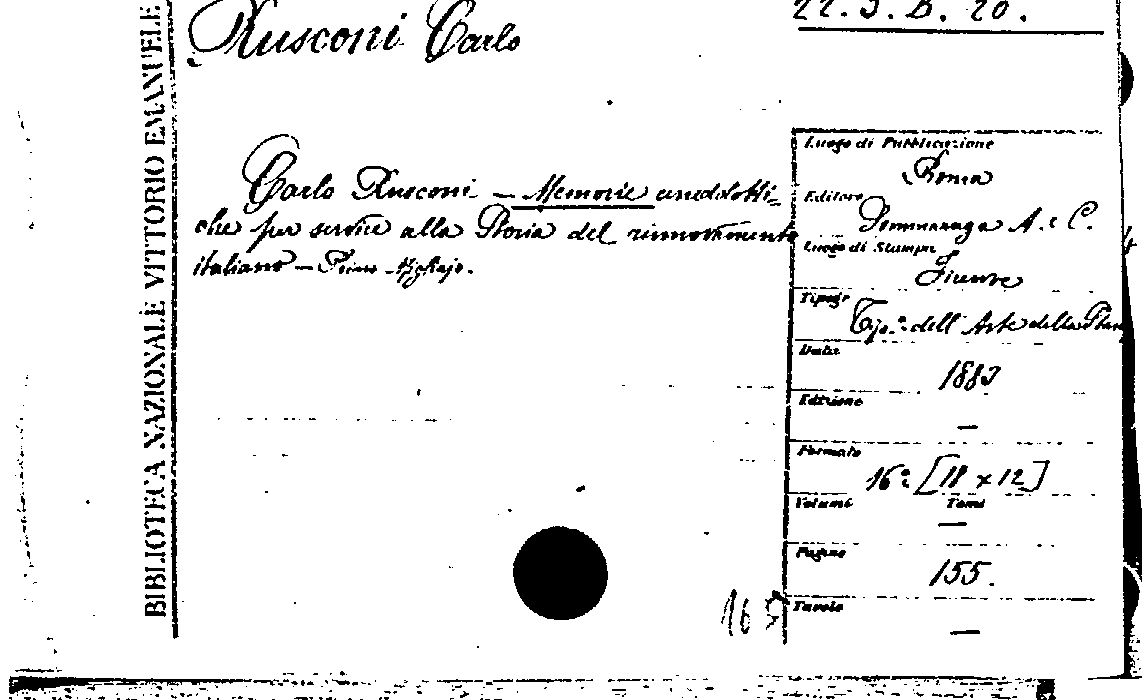 BIBLIOTECA NAZIONALE VITTORIO EMANUELE
22. 3. B. 20.
Rusconi Carlo
Carlo Rusconi — Memorie aneddoti-
che per servire alla Storia del rinnovamento
italiano — Primo Migliajo.
Luogo di Pubblicazione
Roma
Editore
Sommaruga A. e C.
Luogo di Stampa
Firenze
Tipogr
Tip.ª dell' Arte della Stam
Data
1883
Edizione
—
Formato
16º [18 x 12]
Volumi Tomi
—
Pagine
155.
Tavole
—